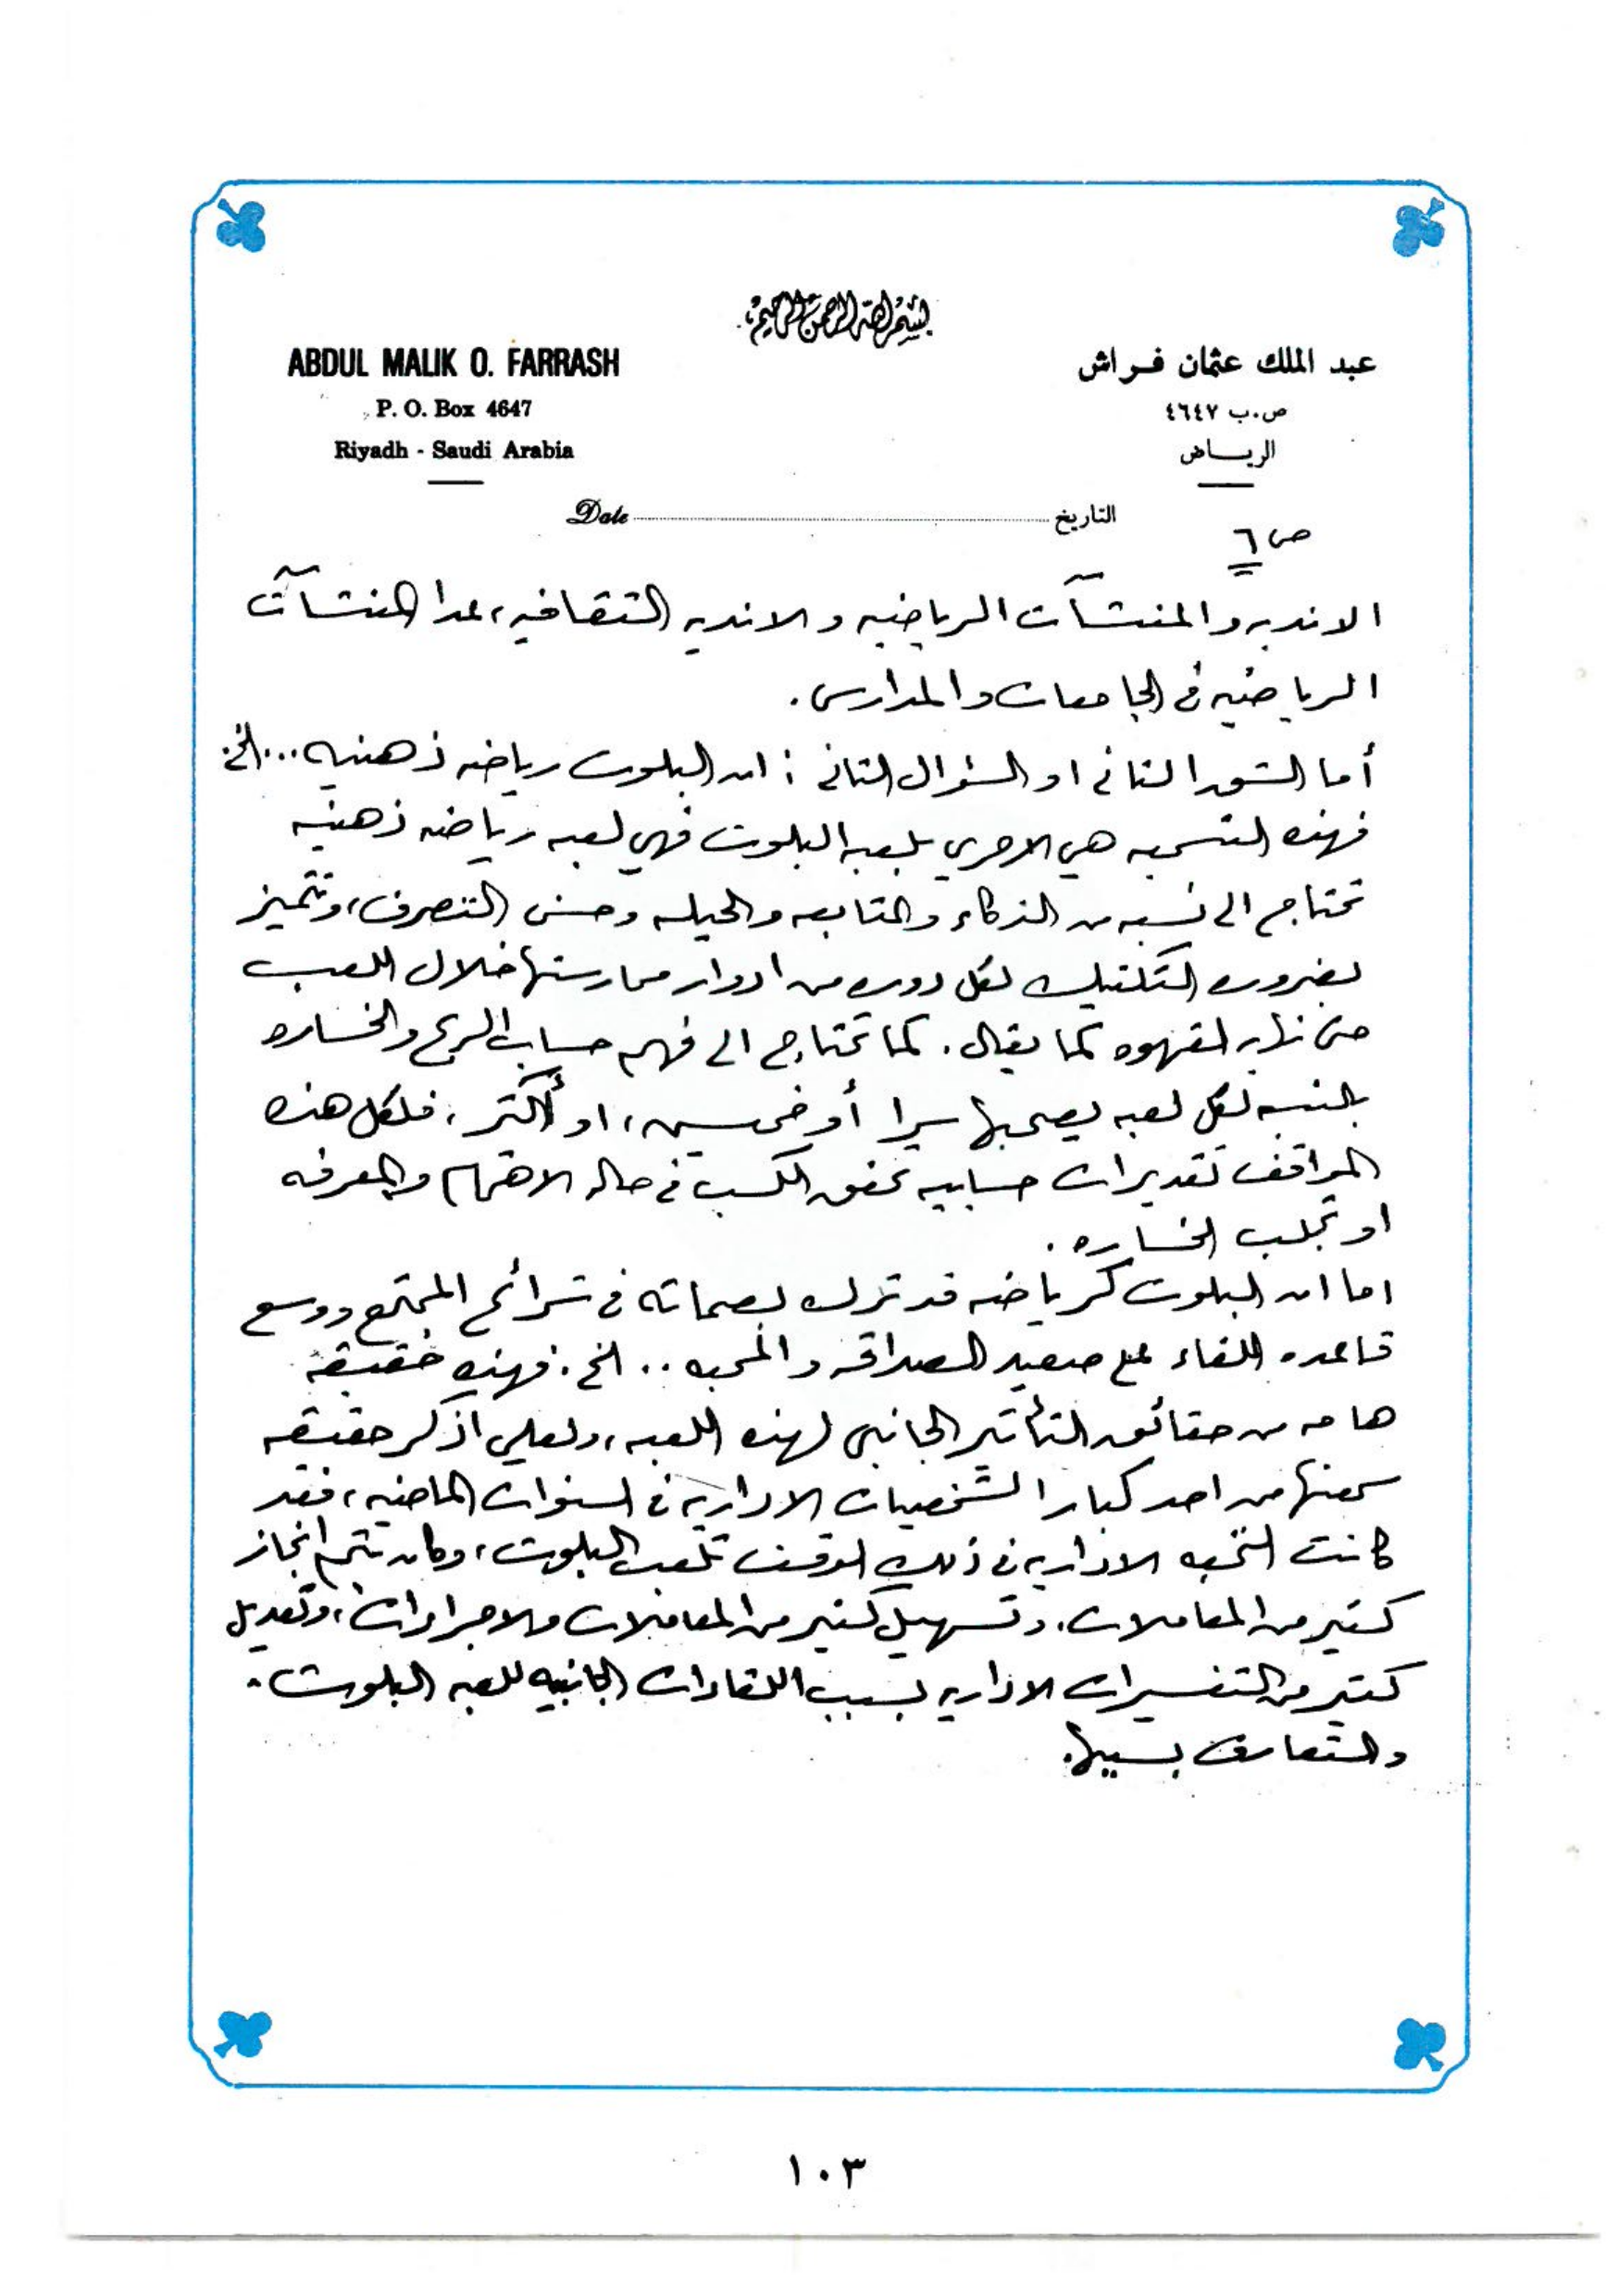 بسم الله الرحمن الرحيم
ABDUL MALIK O. FARRASH
عبد الملك عثمان فراش
P. O. Box 4647
ص.ب ٤٦٤٧
Riyadh - Saudi Arabia
الرياض
Date التاريخ
ص ٦
الانديه والمنشآت الرياضيه والانديه الثقافيه، عدا المنشآت
الرياضيه في الجامعات والمدارس.
أما الشق الثاني او السؤال الثاني: ان البلوت رياضه ذهنيه...الخ.
فهذه التسميه هي الاحرى بلعبة البلوت فهي لعبه رياضه ذهنيه
تحتاج الى نسبه من الذكاء والمتابعه والحيله وحسن التصرف، وتتميز
بضروره التكتيك لكل دوره من ادوار ممارستها خلال اللعب
حتى نهاية القهوه كما يقال. كما تحتاج الى فهم حساب الربح والخساره
بالنسبه لكل لعبه يصحبها سرا أو خمسين، او أكثر، فلكل هذه
المواقف تقديرات حسابيه تحقق الكسب في حالة الاهتمام والمعرفه
او تجلب الخساره.
اما ان البلوت كرياضه قد ترك بصماته في شرائح المجتمع ووسع
قاعدة اللقاء على صعيد الصداقه والمحبه.. الخ. فهذه حقيقة
هامه من حقائق التأثير الجانبي لهذه اللعبه، ولعلي اذكر حقيقه
سمعتها من احد كبار الشخصيات الاداريه في السنوات الماضيه، فقد
كانت النخبه الاداريه في ذلك الوقت تلعب البلوت، وكان يتم انجاز
كثير من المعاملات. وتسهيل كثير من المعاملات والاجراءات، وتعديل
كثير من التفسيرات الاداريه بسبب اللقاءات الجانبيه للعبة البلوت.
والتعارف بسببها.
١٠٣